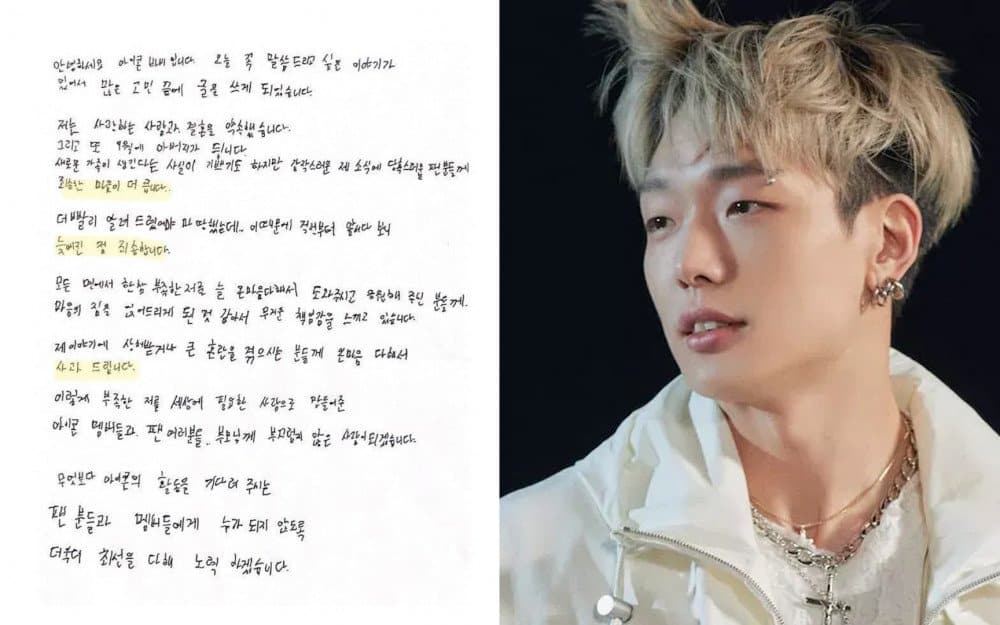 안녕하세요 아이콘 바비입니다. 오늘 꼭 말씀드리고 싶은 이야기가
있어서 많은 고민 끝에 글을 쓰게 되었습니다.
저는 사랑하는 사람과 결혼을 약속했습니다.
그리고 또 9월에 아버지가 됩니다.
새로운 가족이 생긴다는 사실이 기쁘기도 하지만 갑작스러운 제 소식에 당혹스러울 팬분들께
죄송한 마음이 더 큽니다..
더 빨리 알려 드렸어야 마땅했는데.. 이 때문에 걱정부터 앞서다 보니
늦어진 점 죄송합니다.
모든 면에서 한참 부족한 저를 늘 온마음다해서 도와주시고 응원해 주신 분들께.
마음의 짐을 얹어드리게 된 것 같아서 무거운 책임감을 느끼고 있습니다.
제 이야기에 상처받거나 큰 혼란을 겪으시는 분들께 온마음 다해서
사과 드립니다.
이렇게 부족한 저를 세상에 필요한 사람으로 만들어준
아이콘 멤버들과, 팬 여러분들.. 부모님께 부끄럽지 않은 사람이 되겠습니다.
무엇보다 아이콘의 활동을 기다려 주시는
팬 분들과 멤버들에게 누가 되지 않도록
더욱더 최선을 다해 노력 하겠습니다.